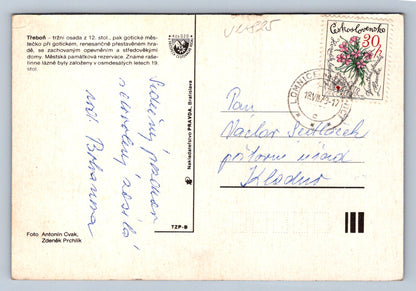 Třeboň - tržní osada z 12. stol., pak gotické měs-
tečko při gotickém, renesančně přestavěném hra-
dě, se zachovaným opevněním a středověkými
domy. Městská památková rezervace. Známé raše-
linné lázně byly založeny v osmdesátých letech 19
stol.
Foto Antonín Cvak,
Zdeněk Prchlík
Nakladatelství PRAVDA, Bratislava
TZP-B
Srdečný pozdrav
zasílá
Československo
30 h
LOMNICE
18.VII.79-17
c
Pan
Václav Sedláček
poštovní úřad
Kladno